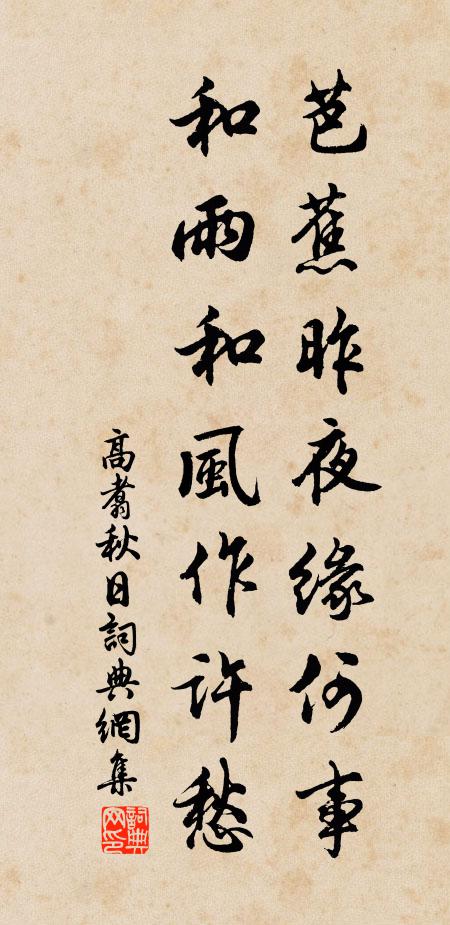 芭蕉昨夜緣何事
和雨和風作許愁
高翥秋日詞典網集
詞典网印